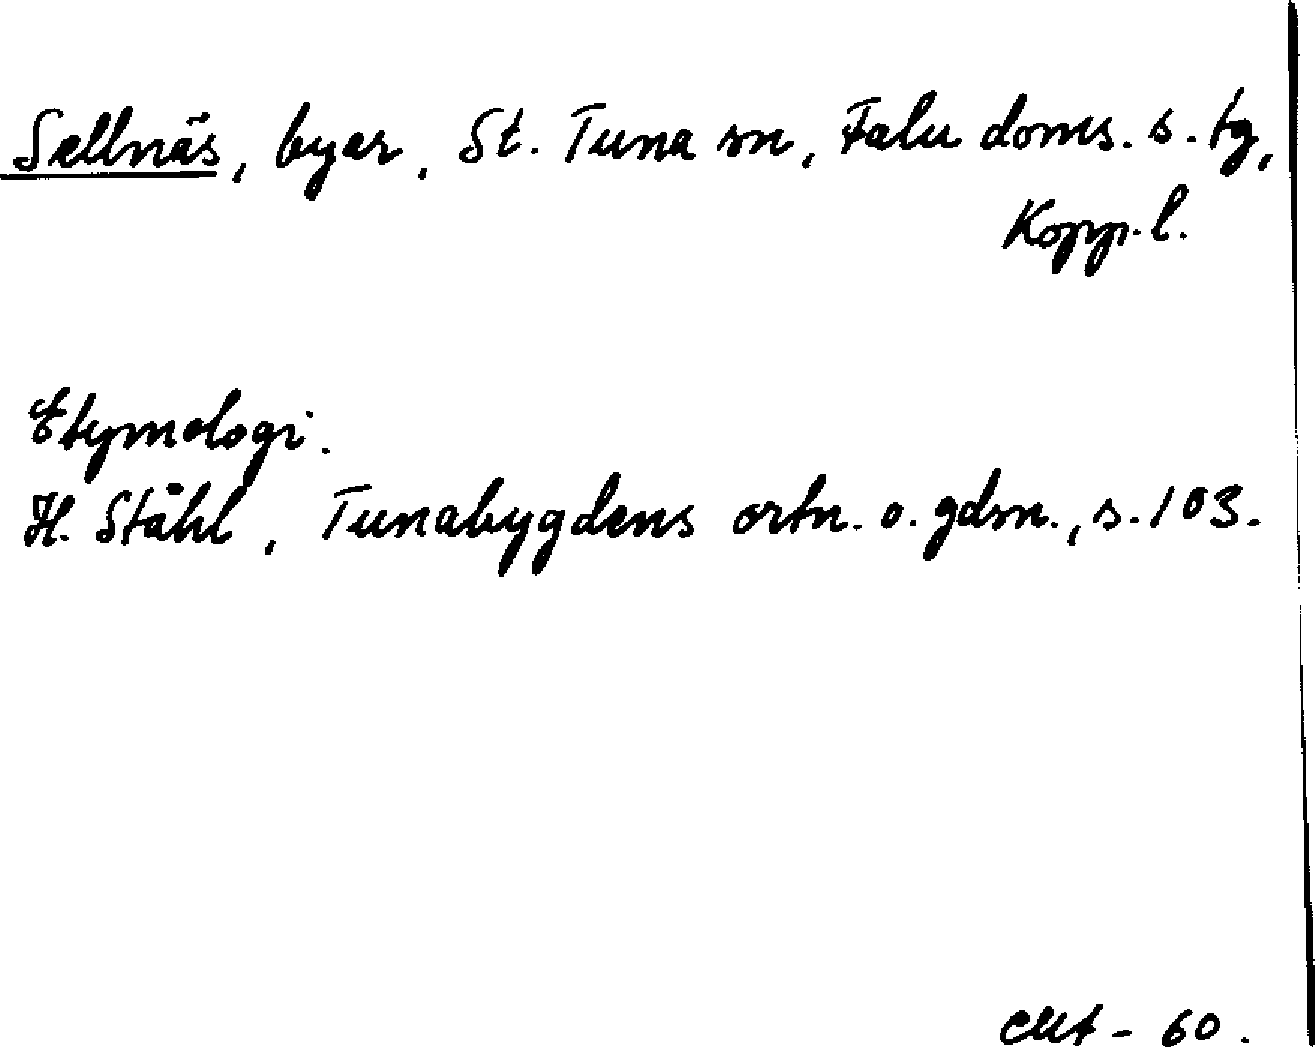 Sellnäs, byar, St. Tuna sn, Falu doms. s. tg,
Kopp. l.
Etymologi.
H. Ståhl, Tunabygdens ortn. o. gdsn., s. 103.
- 60.